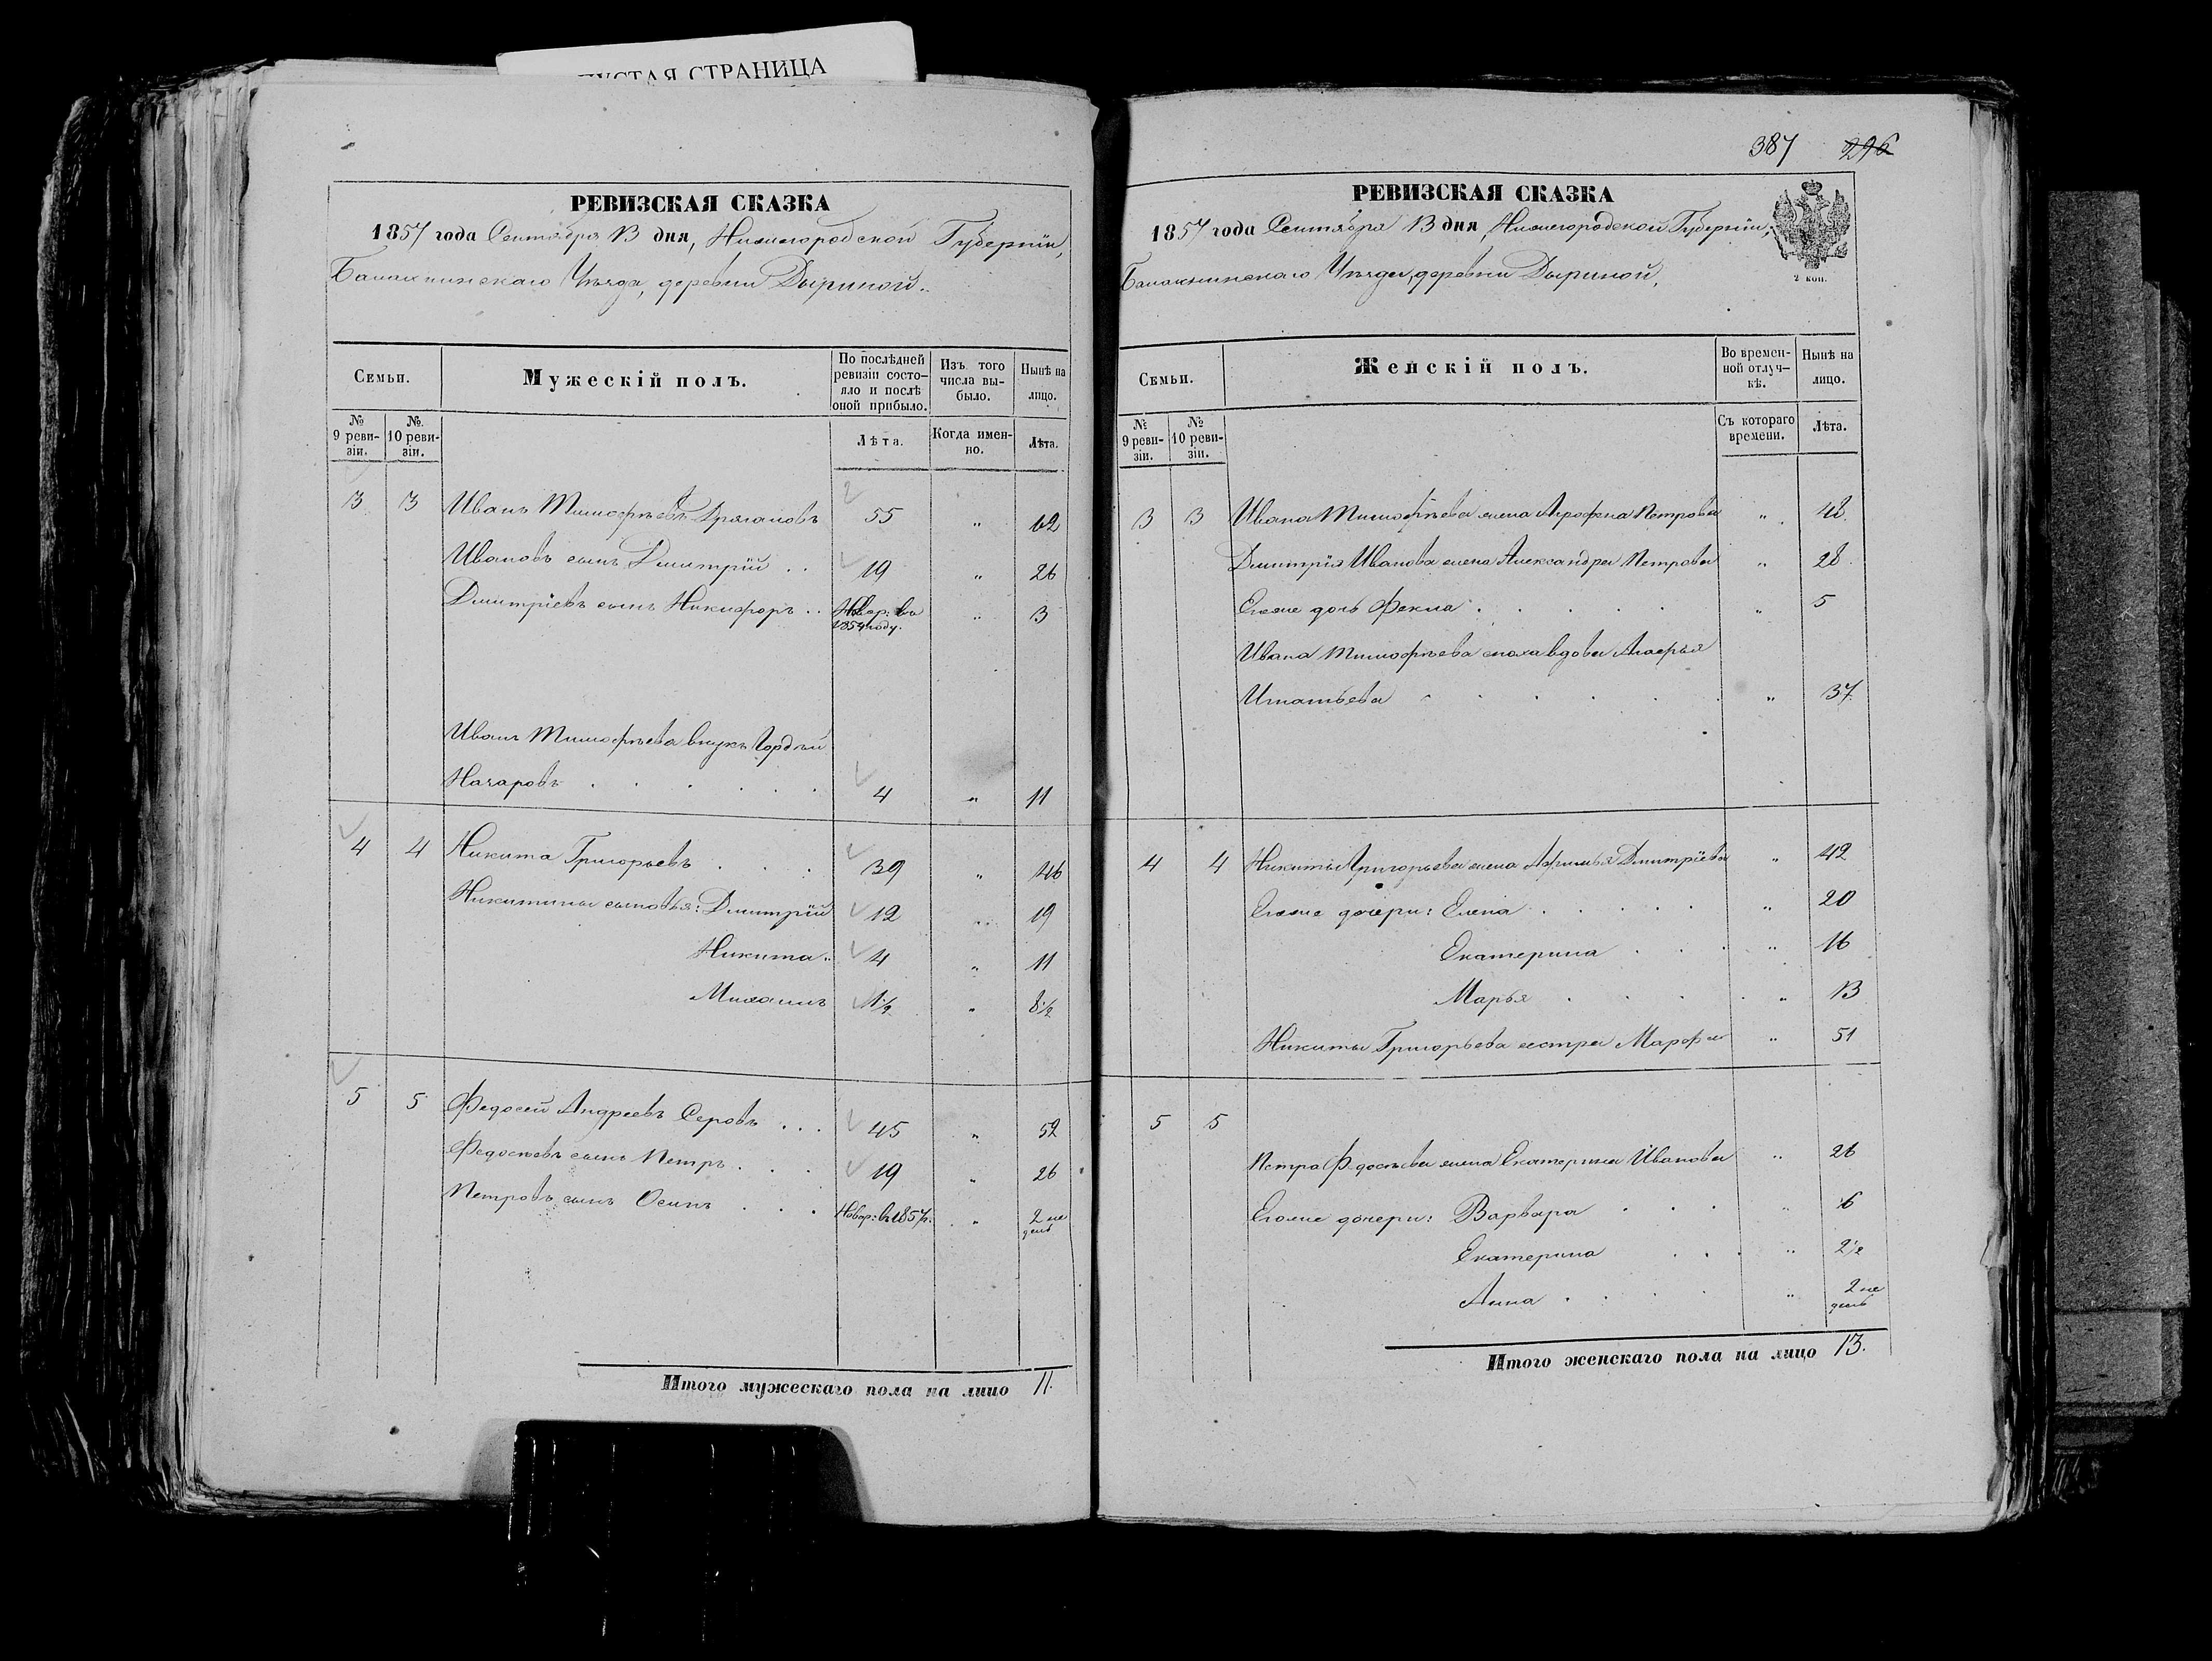 СТРАНИЦА
РЕВИЗСКАЯ СКАЗКА
1857 года Сентября 13 дня, Нижегородской Губерніи,
Балахнинскаго Уѣзда, деревни Дыриной.
Семьи.
Мужескій полъ.
По послѣдней ревизіи состояло и послѣ оной прибыло.
Изъ того числа выбыло.
Нынѣ на лицо.
№ 9 ревизіи.
№ 10 ревизіи.
Лѣта.
Когда именно.
Лѣта.
3 3 Иванъ Тимофѣевъ 55 " 62
Ивановъ сынъ Дмитрій . . 19 " 26
Дмитріевъ сынъ Никифоръ . . Новор: въ 1854 году. " 3
Иванъ Тимофѣева внукъ Гордѣй
4 " 11
4 4 Никита Григорьевъ . . . 39 " 46
Никитины сыновья: Дмитрій 12 " 19
Никита " 4 " 11
Михаилъ 1½ " 8½
5 5 Федосей Андреевъ Серовъ . . . 45 " 52
Федосѣевъ сынъ Петръ . . . 19 " 26
Петровъ сынъ Осипъ . . . Новор: въ 1857г. " 2 недель
Итого мужескаго пола на лицо 11.
387 296
РЕВИЗСКАЯ СКАЗКА
1857 года Сентября 13 дня, Нижегородской Губерніи,
Балахнинскаго Уѣзда, деревни Дыриной.
2 коп.
Семьи.
Женскій полъ.
Во временной отлучкѣ.
Нынѣ на лицо.
№ 9 ревизіи.
№ 10 ревизіи.
Съ котораго времени.
Лѣта.
3 3 Ивана Тимофѣева жена Аграфена Петрова " 48
Дмитрія Иванова жена Александра Петрова " 28
Егоже дочь Фекла . . . . . " 5
Ивана Тимофѣева сноха вдова
Игнатьева . . . . . " 37
4 4 Никиты Григорьева жена Афимья Дмитріева " 42
Егоже дочери: Елена . . . . . " 20
Екатерина . . . " 16
Марья . . . . " 13
Никиты Григорьева сестра Марфа " 51
5 5
Петра Федосѣева жена Екатерина Иванова " 26
Егоже дочери: Варвара . . . . " 6
Екатерина . . . " 2½
Анна . . . . . " 2 недель
Итого женскаго пола на лицо 13.